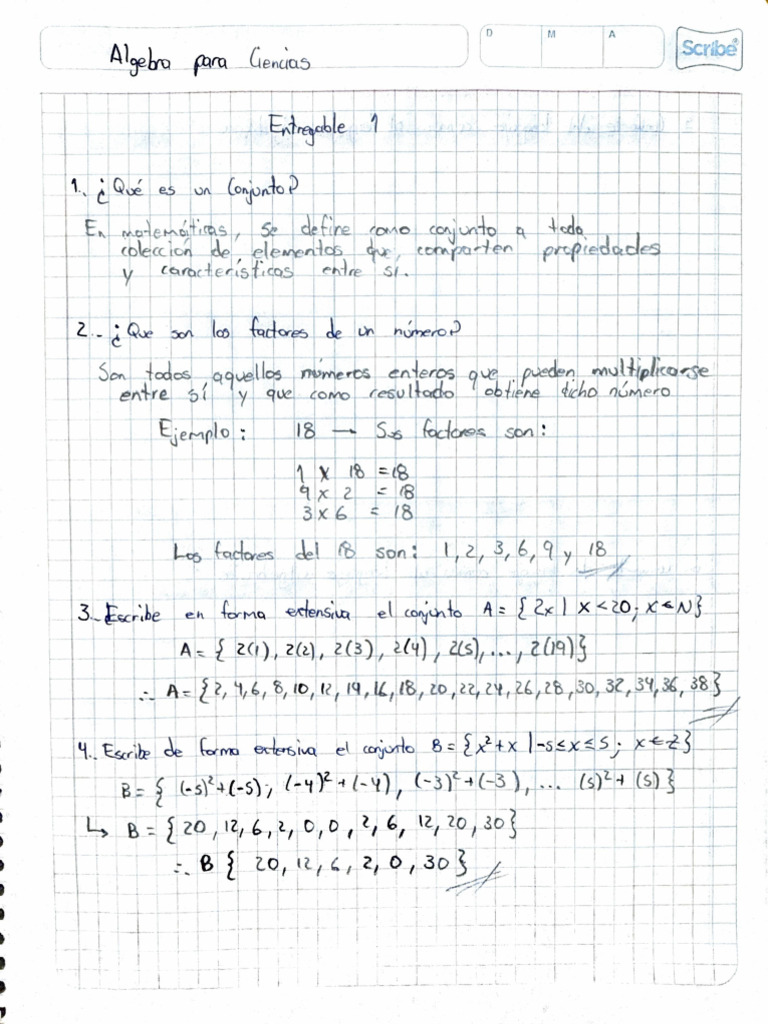 Algebra para Ciencias
D M A
Scribe
Entregable 1
1.. ¿Qué es un Conjunto?
En matemáticas, se define como conjunto a toda
colección de elementos que, comparten propiedades
y característicos entre sí.
2.- ¿Que son los factores de un número?
Son todos aquellos números enteros que pueden multiplicarse
entre sí y que como resultado obtiene dicho número
Ejemplo: 18 — Sus factores son:
1 x 18 = 18
9 x 2 = 18
3 x 6 = 18
Los factores del 18 son: 1, 2, 3, 6, 9 y 18
3.- Escribe en forma extensiva el conjunto A = { 2x | x < 20; x ∈ N}
A = { 2(1), 2(2), 2(3), 2(4), 2(5), ..., 2(19)}
∴ A = {2, 4, 6, 8, 10, 12, 14, 16, 18, 20, 22, 24, 26, 28, 30, 32, 34, 36, 38}
4.. Escribe de forma extensiva el conjunto B = {x²+x | -5 ≤ x ≤ 5; x ∈ Z}
B = { (-5)²+(-5); (-4)²+(-4), (-3)²+(-3), ... (5)²+(5)}
↳ B = {20, 12, 6, 2, 0, 0, 2, 6, 12, 20, 30}
∴ B { 20, 12, 6, 2, 0, 30}